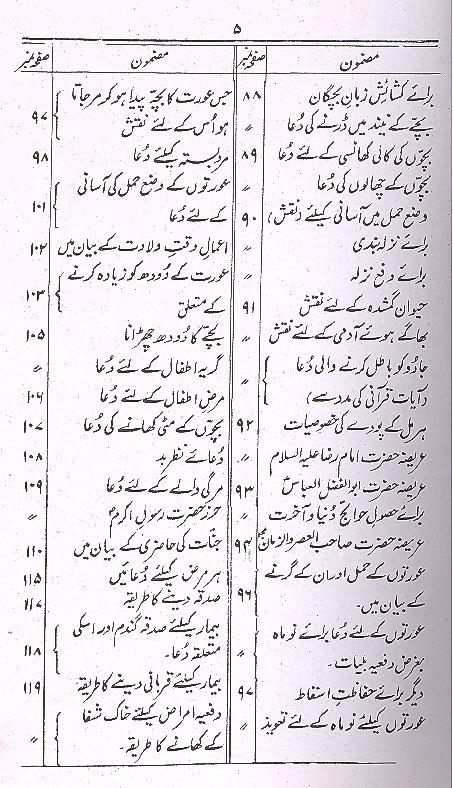 ۵
مضمون صفحہ نمبر
برائے کشائش زبان بچگان ۸۸
بچے کے نیند میں ڈرنے کی دُعا 〃
بچوں کی کالی کھانسی کے لئے دُعا ۸۹
بچوں کے چھالوں کی دُعا 〃
وضع حمل میں آسانی کیلئے (نقش) ۹۰
برائے نزلہ بندی 〃
برائے دفع نزلہ 〃
حیوان گمشدہ کے لئے نقش ۹۱
بھاگے ہوئے آدمی کے لئے نقش 〃
جادُو کو باطل کرنے والی دُعا
(آیات قرآنی کی مدد سے) 〃
ہرمل کے پودے کی خصوصیات ۹۲
عریضہ حضرت امام رضا علیہ السلام 〃
عریضہ حضرت ابوالفضل العباسؑ ۹۳
برائے حصول حوائج دُنیا و آخرت 〃
عریضہ حضرت صاحب العصر والزمانؑ ۹۴
عورتوں کے حمل اور ان کے گرنے
کے بیان میں۔ ۹۶
عورتوں کے لئے دُعا برائے نو ماہ
بغرض دفعیہ بلیات۔ 〃
دیگر برائے حفاظت اسقاط ۹۷
عورتوں کیلئے نو ماہ کے لئے تعویذ 〃
مضمون صفحہ نمبر
جس عورت کا بچّہ پیدا ہو کو مر جاتا
ہو اُس کے لئے نقش ۹۷
مرد بستہ کیلئے دُعا ۹۸
عورتوں کے وضع حمل کی آسانی
کے لئے دُعا ۱۰۱
اعمال وقتِ ولادت کے بیان میں ۱۰۲
عورت کے دُودھ کو زیادہ کرنے
کے متعلق ۱۰۳
بچّے کا دُودھ چھڑانا ۱۰۵
گریہ اطفال کے لئے دُعا 〃
مرض اطفال کے لئے دُعا ۱۰۶
بچّوں کے مٹی کھانے کی دُعا ۱۰۷
دُعائے نظر بد ۱۰۸
مرگی والے کے لئے دُعا ۱۰۹
حرز حضرت رسول اکرمؐ 〃
جنّات کی حاضری کے بیان میں ۱۱۰
ہر مرض کیلئے دُعائیں ۱۱۵
صدقہ دینے کا طریقہ ۱۱۷
بیمار کیلئے صدقہ گندم اور اسکی
متعلقہ دُعا۔ ۱۱۸
بیمار کیلئے قربانی دینے کا طریقہ ۱۱۹
دفعیہ امراض کیلئے خاک شفا
کے کھانے کا طریقہ۔ 〃